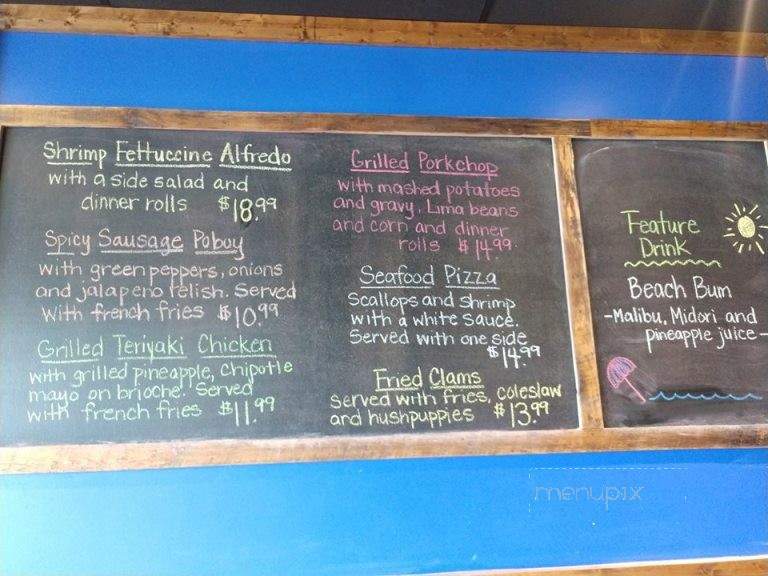 Shrimp Fettuccine Alfredo
with a side salad and
dinner rolls $18.99
Spicy Sausage Poboy
with green peppers, onions
and jalapeno relish. Served
with french fries $10.99
Grilled Teriyaki Chicken
with grilled pineapple, Chipotle
mayo on brioche. Served
with french fries $11.99
Grilled Porkchop
with mashed potatoes
and gravy, Lima beans
and corn and dinner
rolls $14.99
Seafood Pizza
Scallops and shrimp
with a white sauce.
Served with one side
$14.99
Fried Clams
Served with fries, coleslaw
and hushpuppies $13.99
Feature
Drink
Beach Bum
-Malibu, Midori and
pineapple juice-
menupix